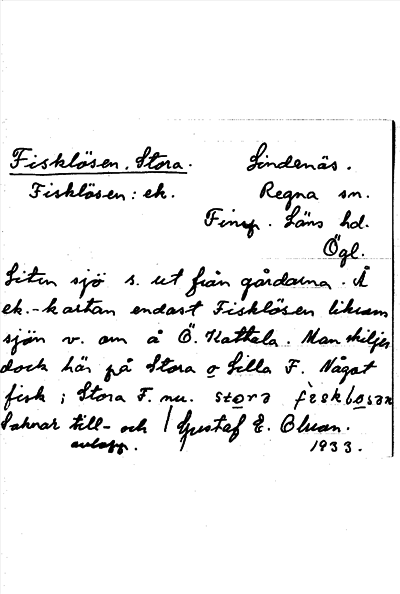 Fisklösen, Stora. Lindenäs.
Fisklösen: ek. Regna sn.
Finsp. Läns hd.
Ögl.
Liten sjö s. ut från gårdarna. Å
ek.-kartan endast Fisklösen liksom
sjön v. om å Ö. Kattala. Man skiljer
dock här på Stora o Lilla F. Något
fisk i Stora F. nu. stora fisklosan
Saknar till- och / Gustaf E. Olsson.
avlopp. 1933.